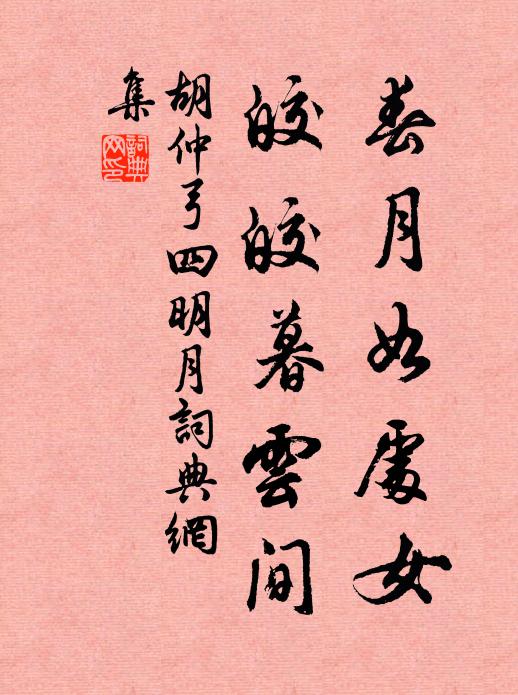 春月如處女
皎皎暮雲間
胡仲弓四明月詞典網
集
詞典網印